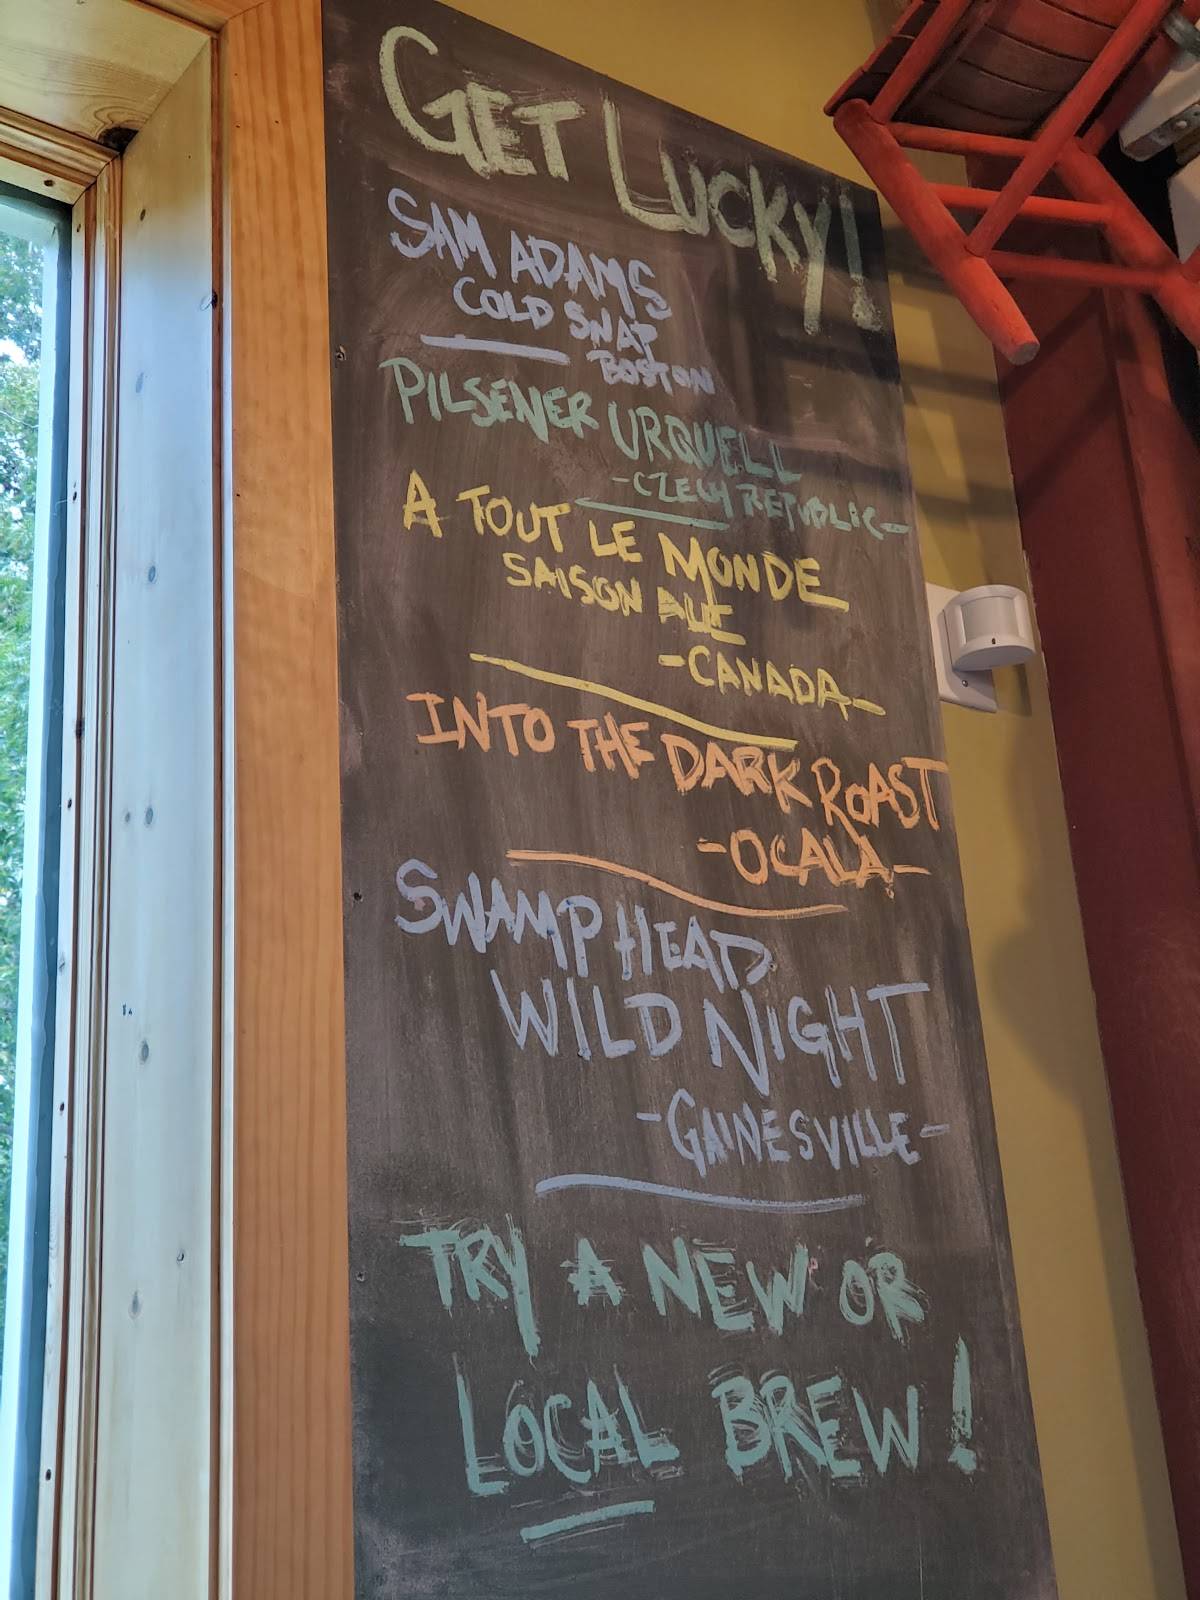 GET LUCKY!
SAM ADAMS
COLD SNAP
BOSTON
PILSENER URQUELL
-CZECH REPUBLIC-
A TOUT LE MONDE
SAISON ALE
-CANADA-
INTO THE DARK ROAST
-OCALA-
SWAMP HEAD
WILD NIGHT
-GAINESVILLE-
TRY A NEW OR
LOCAL BREW!